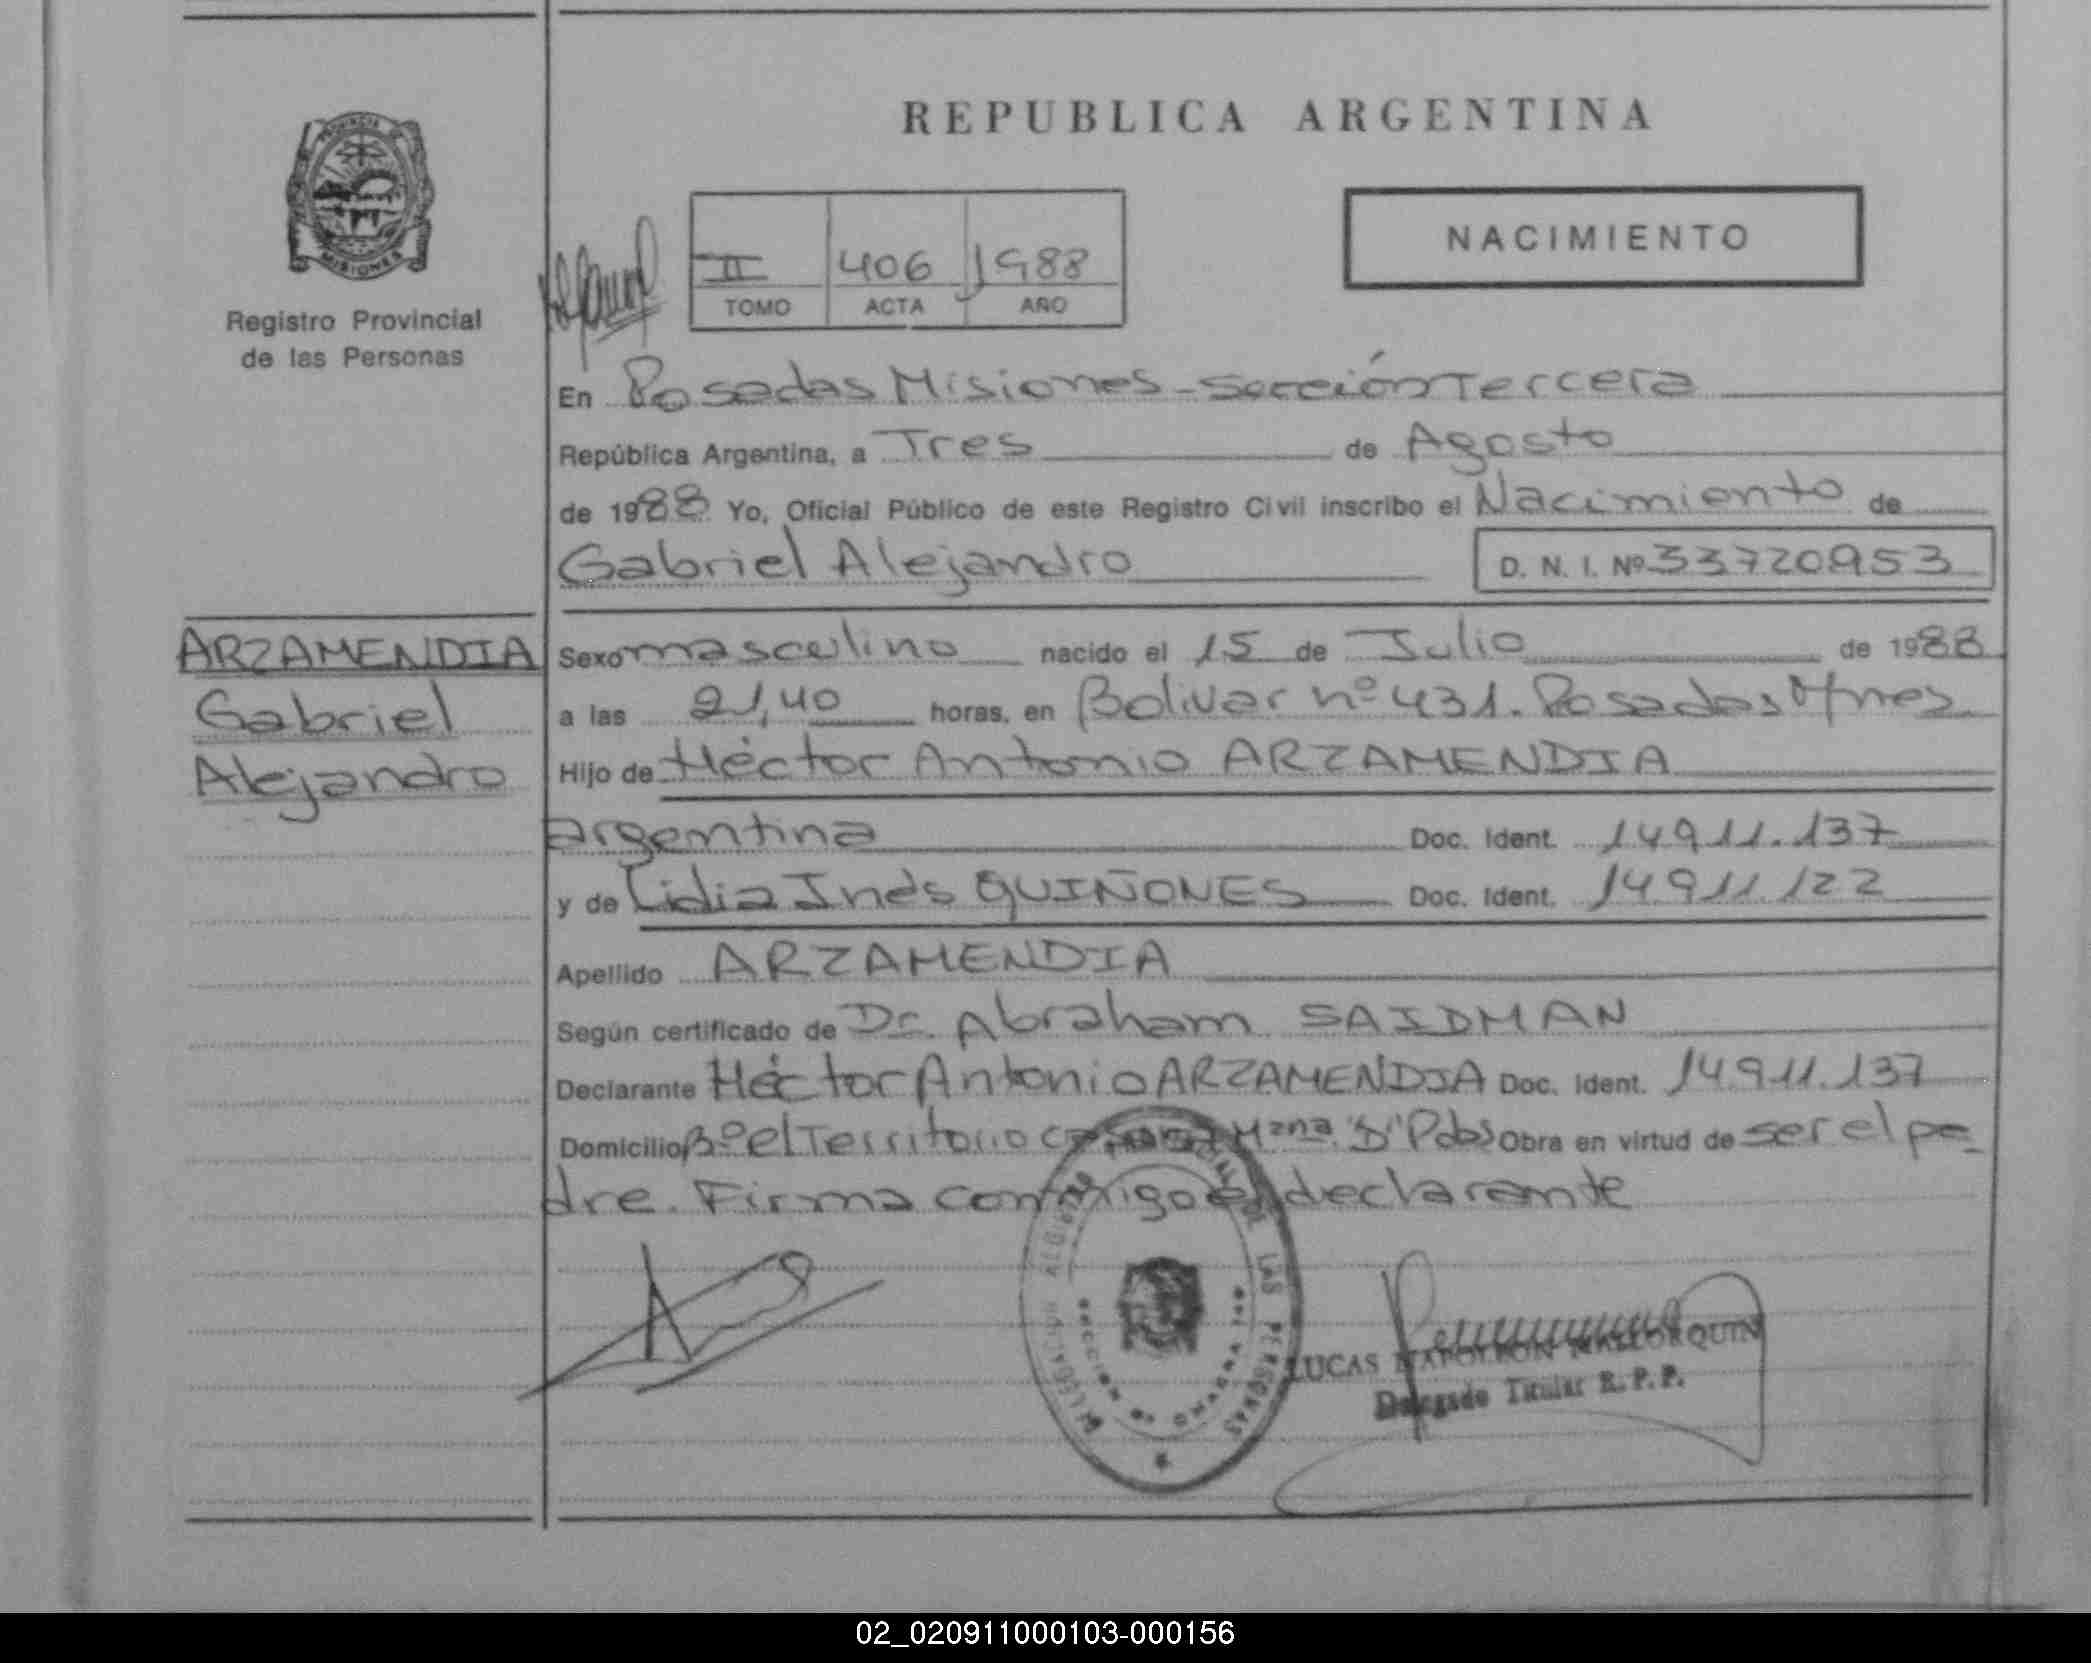 REPUBLICA ARGENTINA
PROVINCIA DE
MISIONES
Registro Provincial
de las Personas
NACIMIENTO
II 406 1988
TOMO ACTA AÑO
En Posadas Misiones - Sección Tercera
República Argentina, a Tres de Agosto
de 1988 Yo, Oficial Público de este Registro Civil inscribo el Nacimiento de
Gabriel Alejandro D. N. I. Nº 33720953
ARZAMENDIA
Gabriel
Alejandro
Sexo masculino nacido el 15 de Julio de 1988
a las 21,40 horas, en Bolivar nº 431. Posadas Mnes
Hijo de Héctor Antonio ARZAMENDIA
argentina Doc. Ident. 14911.137
y de Lidia Inés QUIÑONES Doc. Ident. 14911.122
Apellido ARZAMENDIA
Según certificado de Dr. Abraham SAIDMAN
Declarante Héctor Antonio ARZAMENDIA Doc. Ident. 14.911.137
Domicilio Bº el Territorio Mzna. "D" Pdas Obra en virtud de ser el pa-
dre. Firma conmigo el declarante
LAS PERSONAS
LUCAS NAPOLEON MALLORQUIN
Delegado Titular R. P. P.
02_020911000103-000156